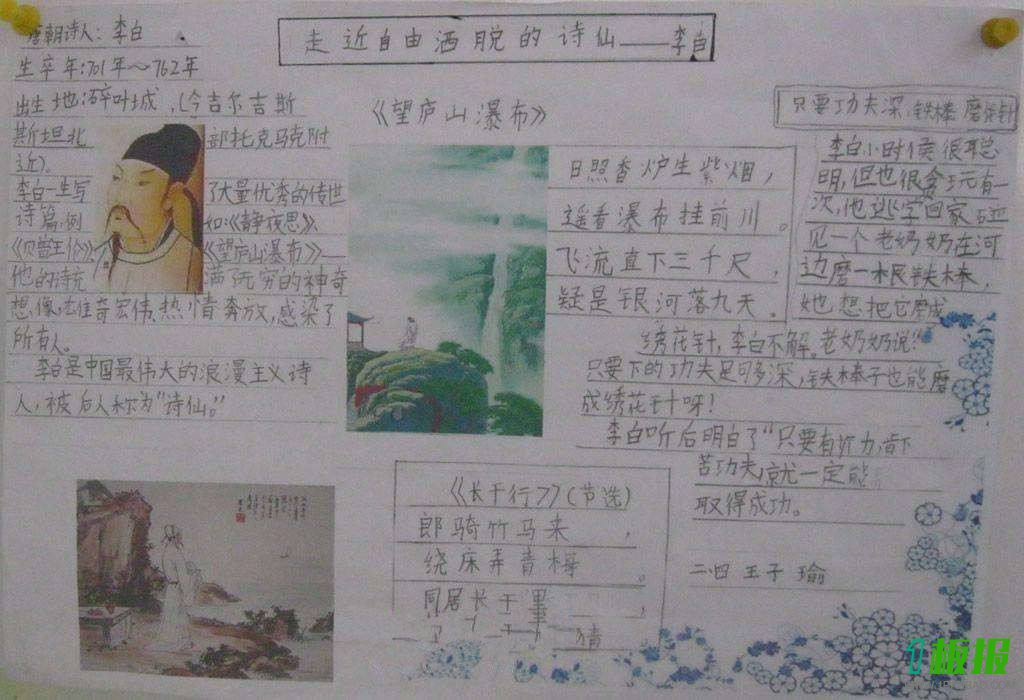 走近自由洒脱的诗仙——李白
唐朝诗人：李白
生卒年:701年～762年
出生地:碎叶城，(今吉尔吉斯
斯坦北部托克马克附
近)。
李白一生写了大量优秀的传世
诗篇,例如:《静夜思》、
《望庐山瀑布》—
他的诗充满了无穷的神奇
想像,雄奇宏伟、热情奔放,感染了
所有人。
李白是中国最伟大的浪漫主义诗
人,被后人称为"诗仙。"
《望庐山瀑布》
日照香炉生紫烟，
遥看瀑布挂前川。
飞流直下三千尺，
疑是银河落九天。
只要功夫深,铁棒磨成针
李白小时候很聪
明,但也很贪玩有一
次,他逃学回家碰
见一个老奶奶在河
边磨一根铁棒，
她想把它磨成
绣花针,李白不解。老奶奶说:"
只要下的功夫足够多深,铁棒子也能磨
成绣花针呀!
李白听后明白了"只要有毅力,肯下
苦功夫,就一定能
取得成功。
二四 王子瑜
《长干行》(节选)
郎骑竹马来，
绕床弄青梅。
同居长干里
猜
板报